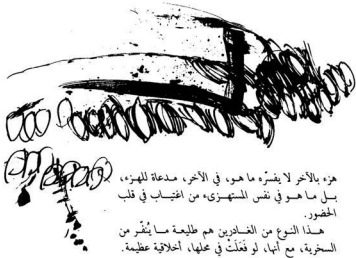 هزء بالآخر لا يفسّره ما هو، في الآخر، مدعاة للهزء،
بل ما هو في نفس المستهزىء من اغتياب في قلب
الحضور.
هذا النوع من الغادرين هم طليعة ما يُنفّر من
السخرية، مع أنها، لو فَعَلَتْ في محلها، أخلاقية عظيمة.